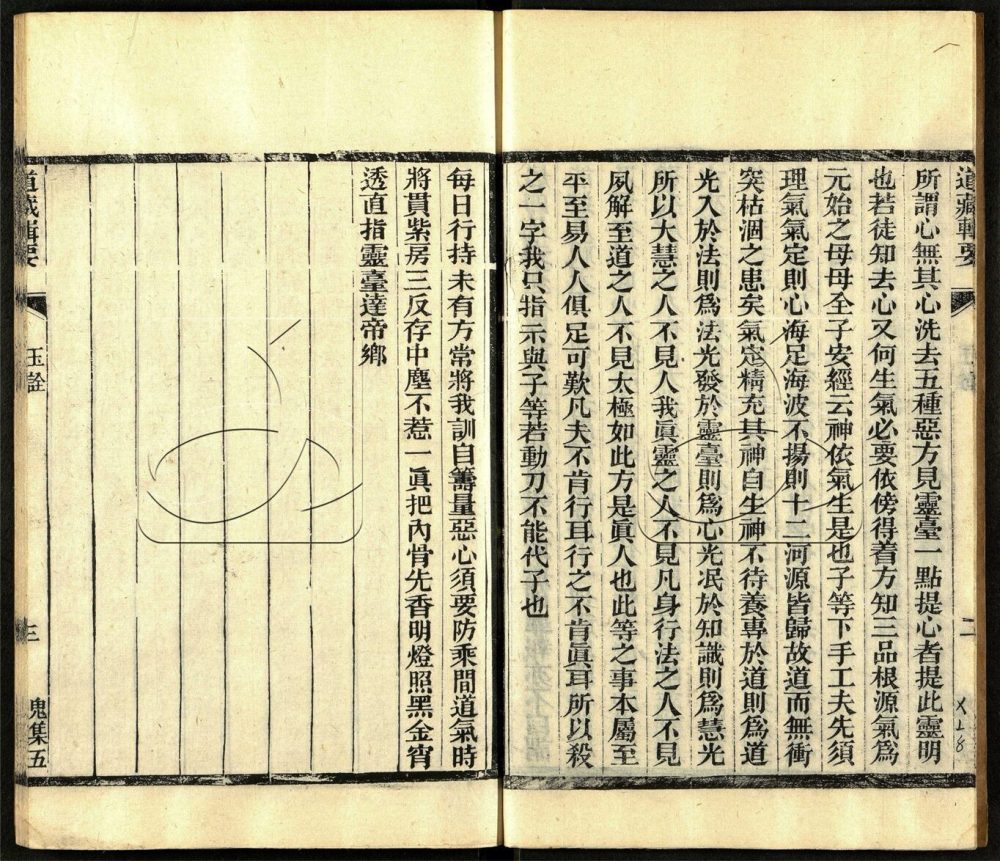 道藏輯要
二
所謂心無其心洗去五種惡方見靈臺一點提心者提此靈明
也若徒知去心又何生氣必要依傍得着方知三品根源氣爲
元始之母母全子安經云神依氣生是也子等下手工夫先須
理氣氣定則心海足海波不揚則十二河源皆歸故道而無衝
突枯涸之患矣氣定精充其神自生神不待養專於道則爲道
光入於法則爲法光發於靈臺則爲心光泯於知識則爲慧光
所以大慧之人不見人我眞靈之人不見凡身行法之人不見
夙解至道之人不見太極如此方是眞人也此等之事本屬至
平至易人人俱足可歎凡夫不肯行耳行之不肯眞耳所以殺
之一字我只指示與子等若動刀不能代子也
每日行持未有方常將我訓自籌量惡心須要防乘間道氣時
將貫紫房三反存中塵不惹一眞把內肯先香明燈照黑金宵
透直指靈臺達帝鄉
道藏輯要
玉詮
三
鬼集五